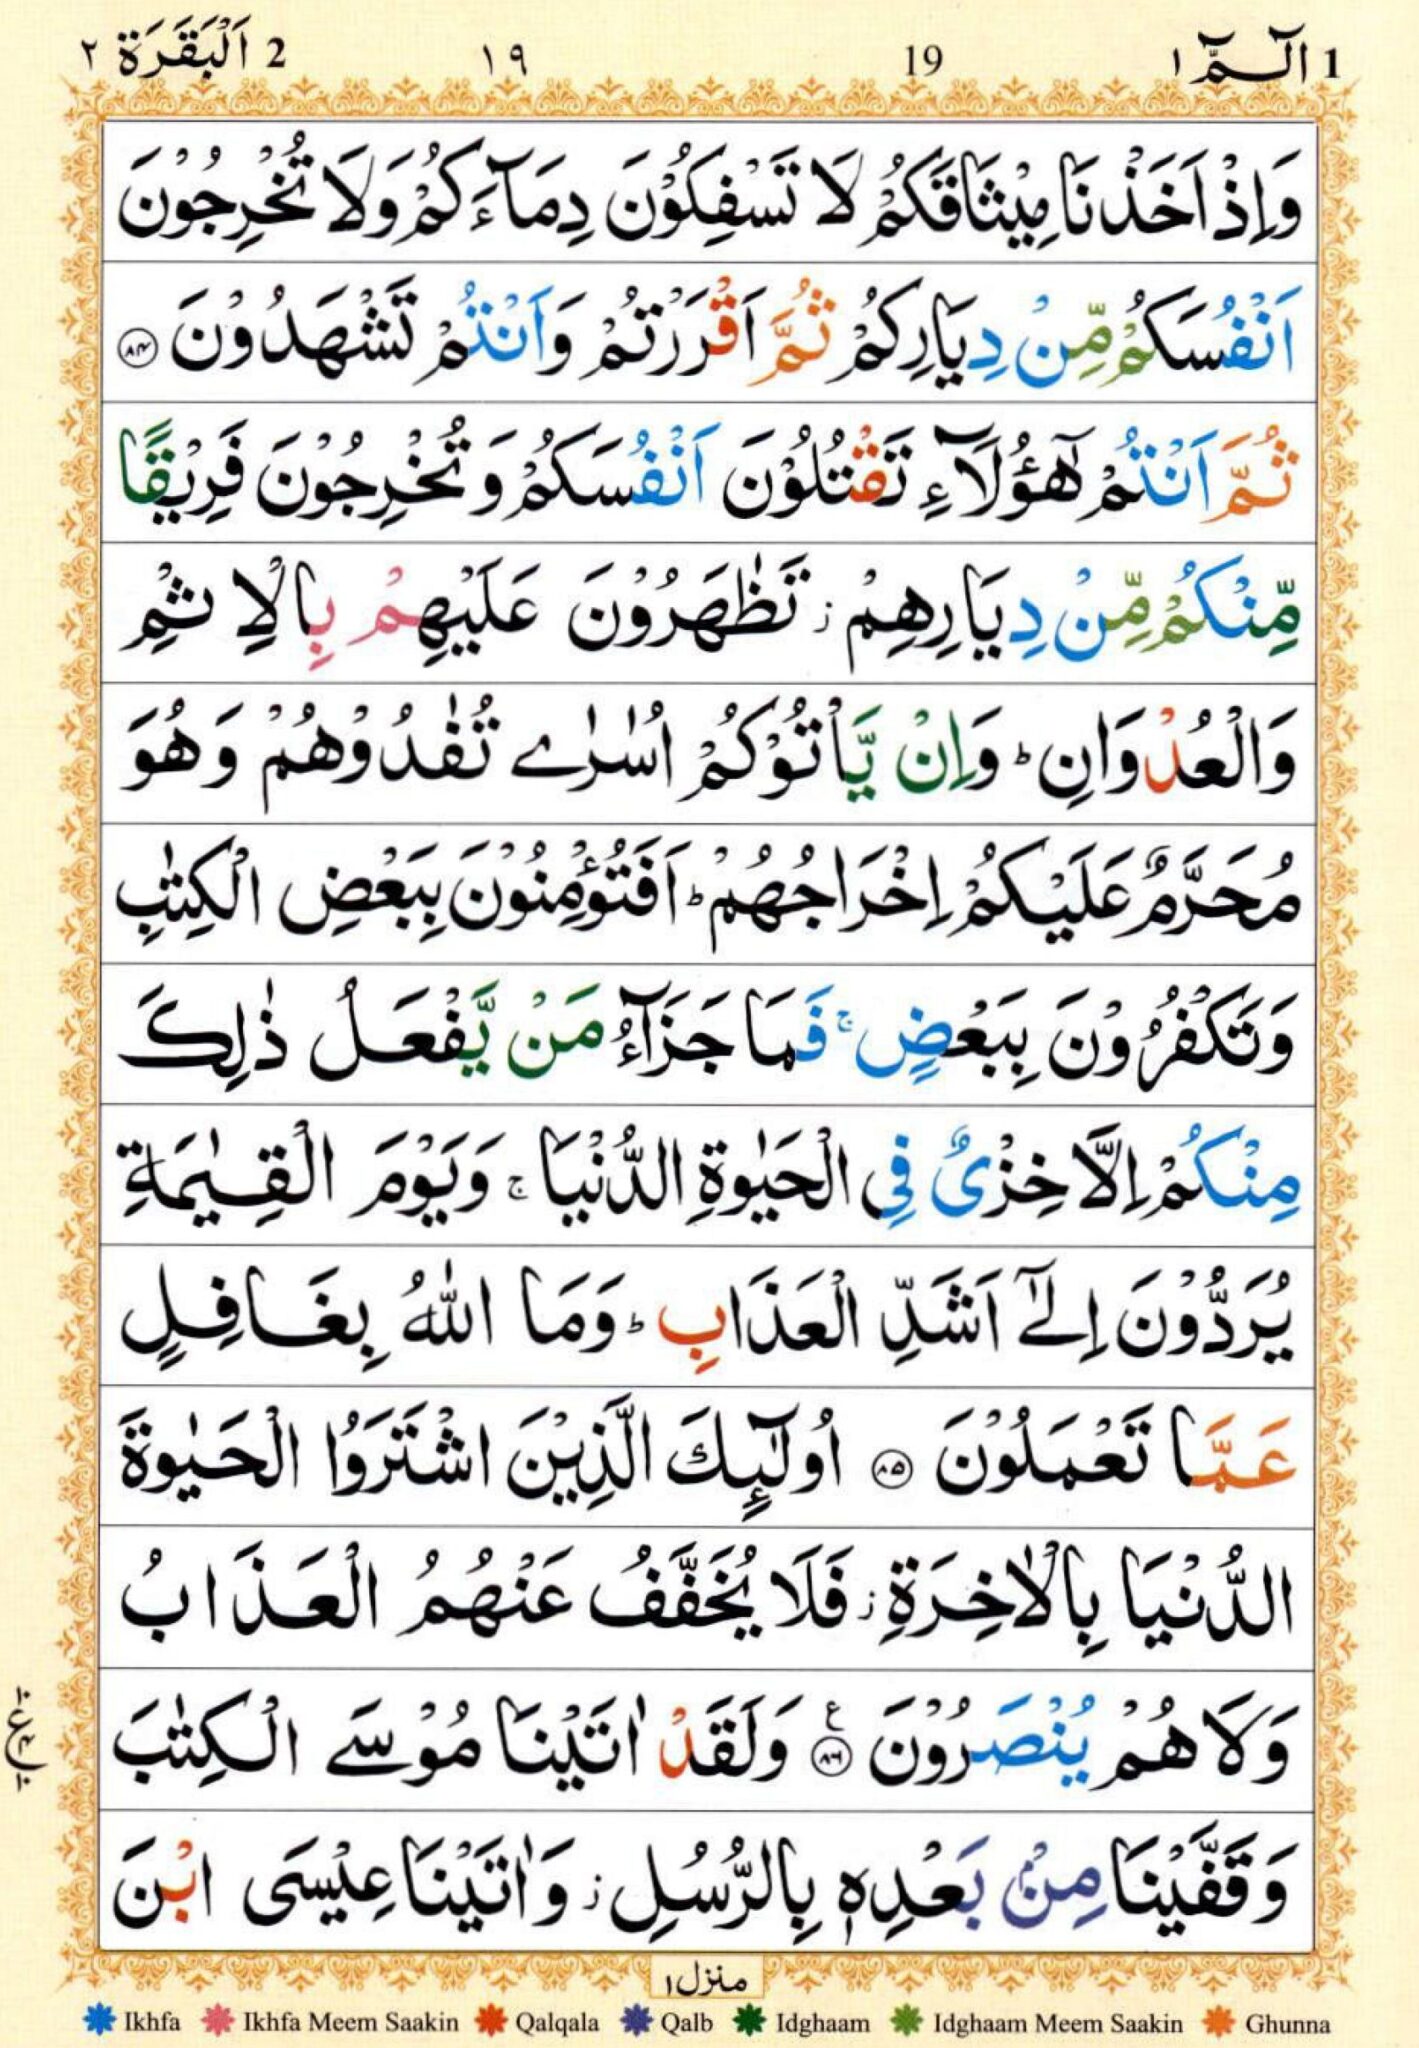 1 الٓـمّٓ ١ 19 ١٩ 2 اَلْبَقَرَة ٢
وَاِذْ اَخَذْنَا مِيْثَاقَكُمْ لَا تَسْفِكُوْنَ دِمَآءَكُمْ وَلَا تُخْرِجُوْنَ
اَنْفُسَكُمْ مِّنْ دِيَارِكُمْ ثُمَّ اَقْرَرْتُمْ وَاَنْتُمْ تَشْهَدُوْنَ ۝٨٤
ثُمَّ اَنْتُمْ هٰٓؤُلَآءِ تَقْتُلُوْنَ اَنْفُسَكُمْ وَتُخْرِجُوْنَ فَرِيْقًا
مِّنْكُمْ مِّنْ دِيَارِهِمْ ز تَظٰهَرُوْنَ عَلَيْهِمْ بِالْاِثْمِ
وَالْعُدْوَانِ ؕ وَاِنْ يَّاْتُوْكُمْ اُسٰرٰى تُفٰدُوْهُمْ وَهُوَ
مُحَرَّمٌ عَلَيْكُمْ اِخْرَاجُهُمْ ؕ اَفَتُؤْمِنُوْنَ بِبَعْضِ الْكِتٰبِ
وَتَكْفُرُوْنَ بِبَعْضٍ ۚ فَمَا جَزَآءُ مَنْ يَّفْعَلُ ذٰلِكَ
مِنْكُمْ اِلَّا خِزْىٌ فِى الْحَيٰوةِ الدُّنْيَا ۚ وَيَوْمَ الْقِيٰمَةِ
يُرَدُّوْنَ اِلٰٓى اَشَدِّ الْعَذَابِ ؕ وَمَا اللّٰهُ بِغَافِلٍ
عَمَّا تَعْمَلُوْنَ ۝٨٥ اُولٰٓئِكَ الَّذِيْنَ اشْتَرَوُا الْحَيٰوةَ
الدُّنْيَا بِالْاٰخِرَةِ ز فَلَا يُخَفَّفُ عَنْهُمُ الْعَذَابُ
وَلَا هُمْ يُنْصَرُوْنَ ۝٨٦ ع وَلَقَدْ اٰتَيْنَا مُوْسَى الْكِتٰبَ
وَقَفَّيْنَا مِنْۢ بَعْدِهٖ بِالرُّسُلِ ز وَاٰتَيْنَا عِيْسَى ابْنَ
منزل ١
Ikhfa Ikhfa Meem Saakin Qalqala Qalb Idghaam Idghaam Meem Saakin Ghunna